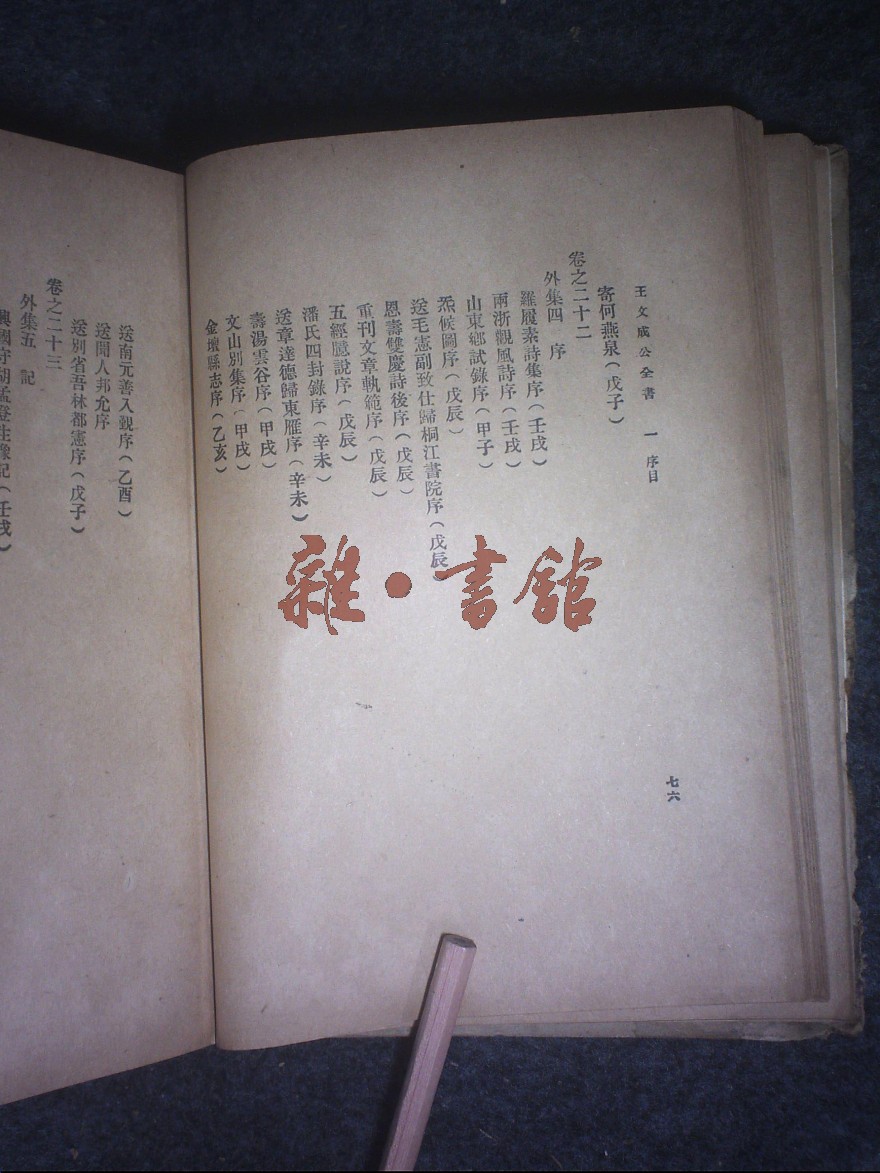 王文成公全書 一 序目
七六
寄何燕泉(戊子)
卷之二十二
外集四 序
羅履素詩集序(壬戌)
兩浙觀風詩序(壬戌)
山東鄉試錄序(甲子)
炁候圖序(戊辰)
送毛憲副致仕歸桐江書院序(戊辰)
恩壽雙慶詩後序(戊辰)
重刊文章軌範序(戊辰)
五經臆說序(戊辰)
潘氏四封錄序(辛未)
送章達德歸東雁序(辛未)
壽湯雲谷序(甲戌)
文山別集序(甲戌)
金壇縣志序(乙亥)
送南元善入覲序(乙酉)
送聞人邦允序
送別省吾林都憲序(戊子)
卷之二十三
外集五 記
興國守胡孟登生像記(壬戌)
雜·書館